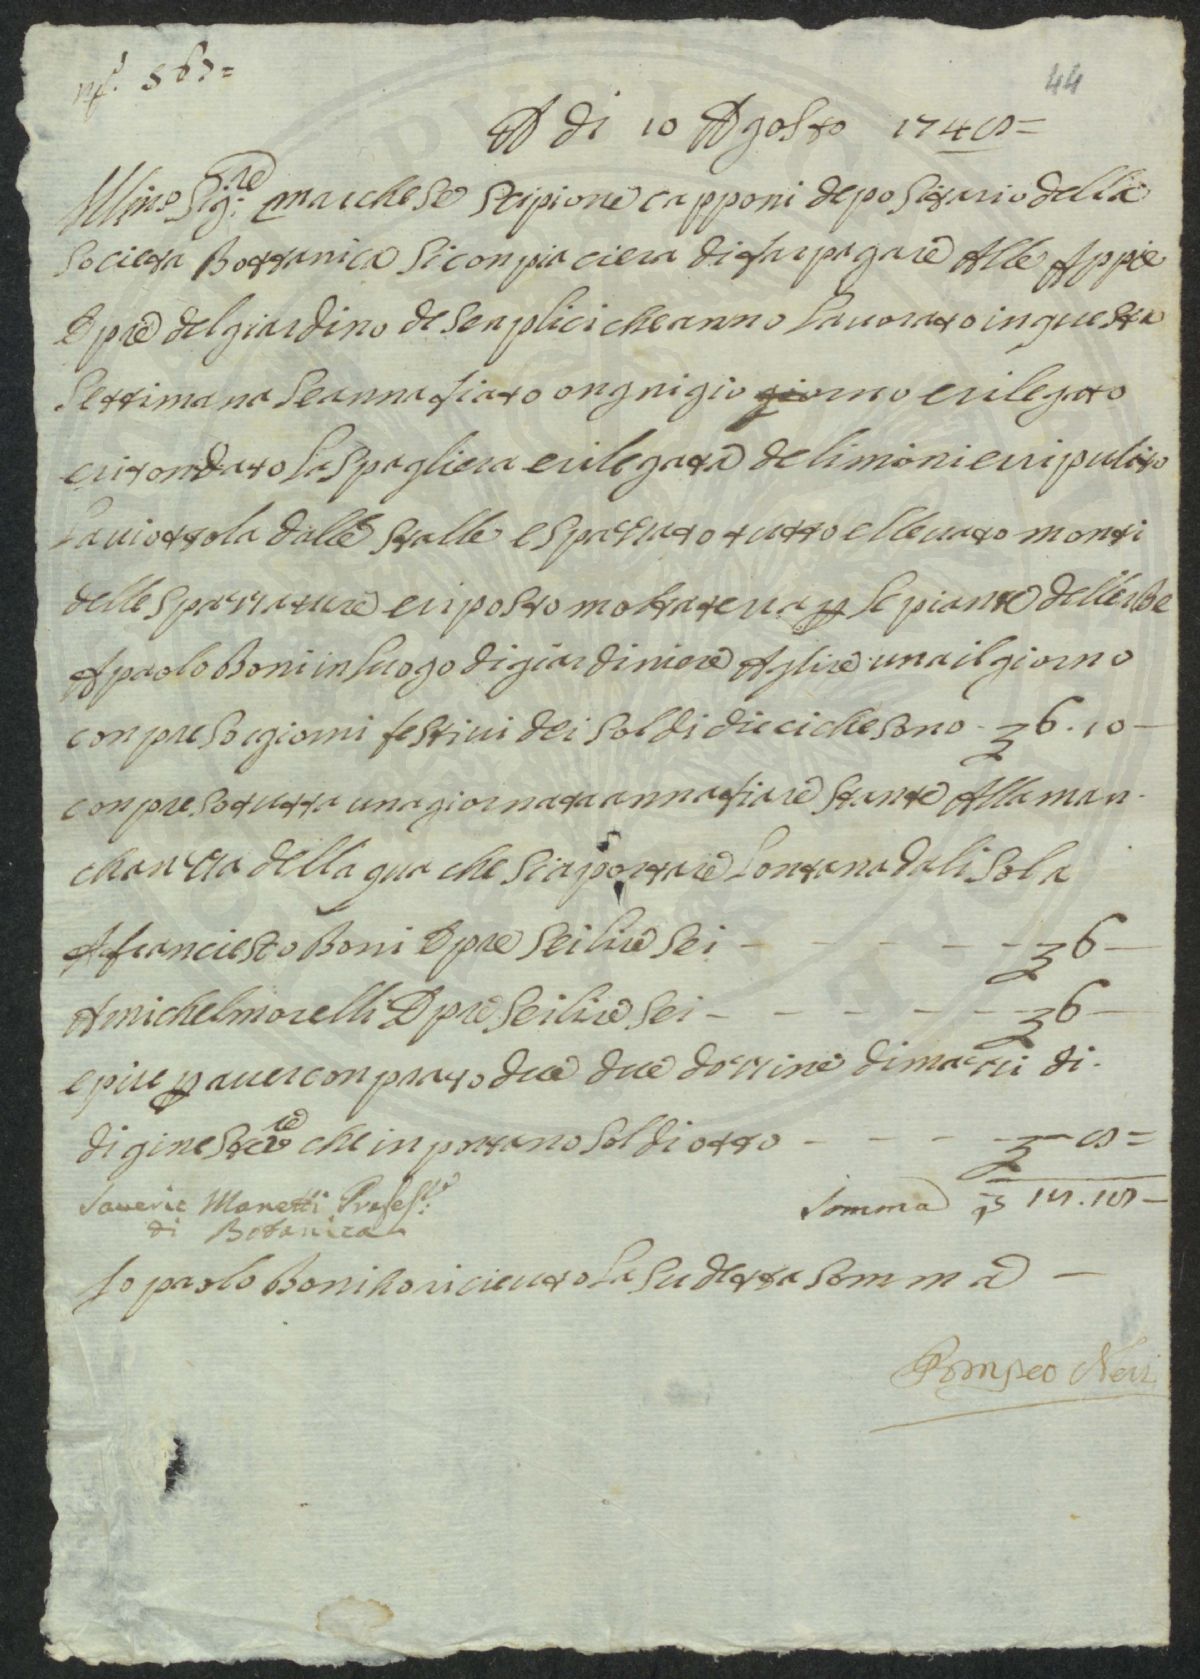 nº. 567=
44
A di 10 Agosto 1748=
Illmo Sig:re marchese Scipione capponi depositario della
Societa Bottanica Si conpiaciera di far pagare Alle Appie
Opre del giardino de Senplici che anno Lavorato in questa
Settimana Se annafiato ongni gio giorno e rilegato
e ritondato La Spagliera e rilegata de limoni e rripulito
La viottola dalle Stalle e Spazzato tutto e llevato monti
delle Spazzature e rriposto molta terra p le piante delle erbe
A paolo Boni in Luogo di giardiniere A glire una il giorno
conpreso i giorni festivi dei Soldi dieci che sono - £ 6.10 -
conpreso tutta una giornata annafiare Stante Alla man-
chanzza della gua che Si a portare Lontana da li Sola
A franciesco Boni Opre Sei lire Sei - - - - - - £ 6 -
A michel morelli Opre Sei lire Sei - - - - - - £ 6 -
e piu p aver conprato due due dozzine di mazzi di
di ginestre che inportano Soldi otto - - - - £ - 8=
Saverio Manetti Profess:re
di Botanica
Somma £ 18.18 -
Io paolo Boni ho ricieuto La Sudetta Somma -
Pompeo Neri